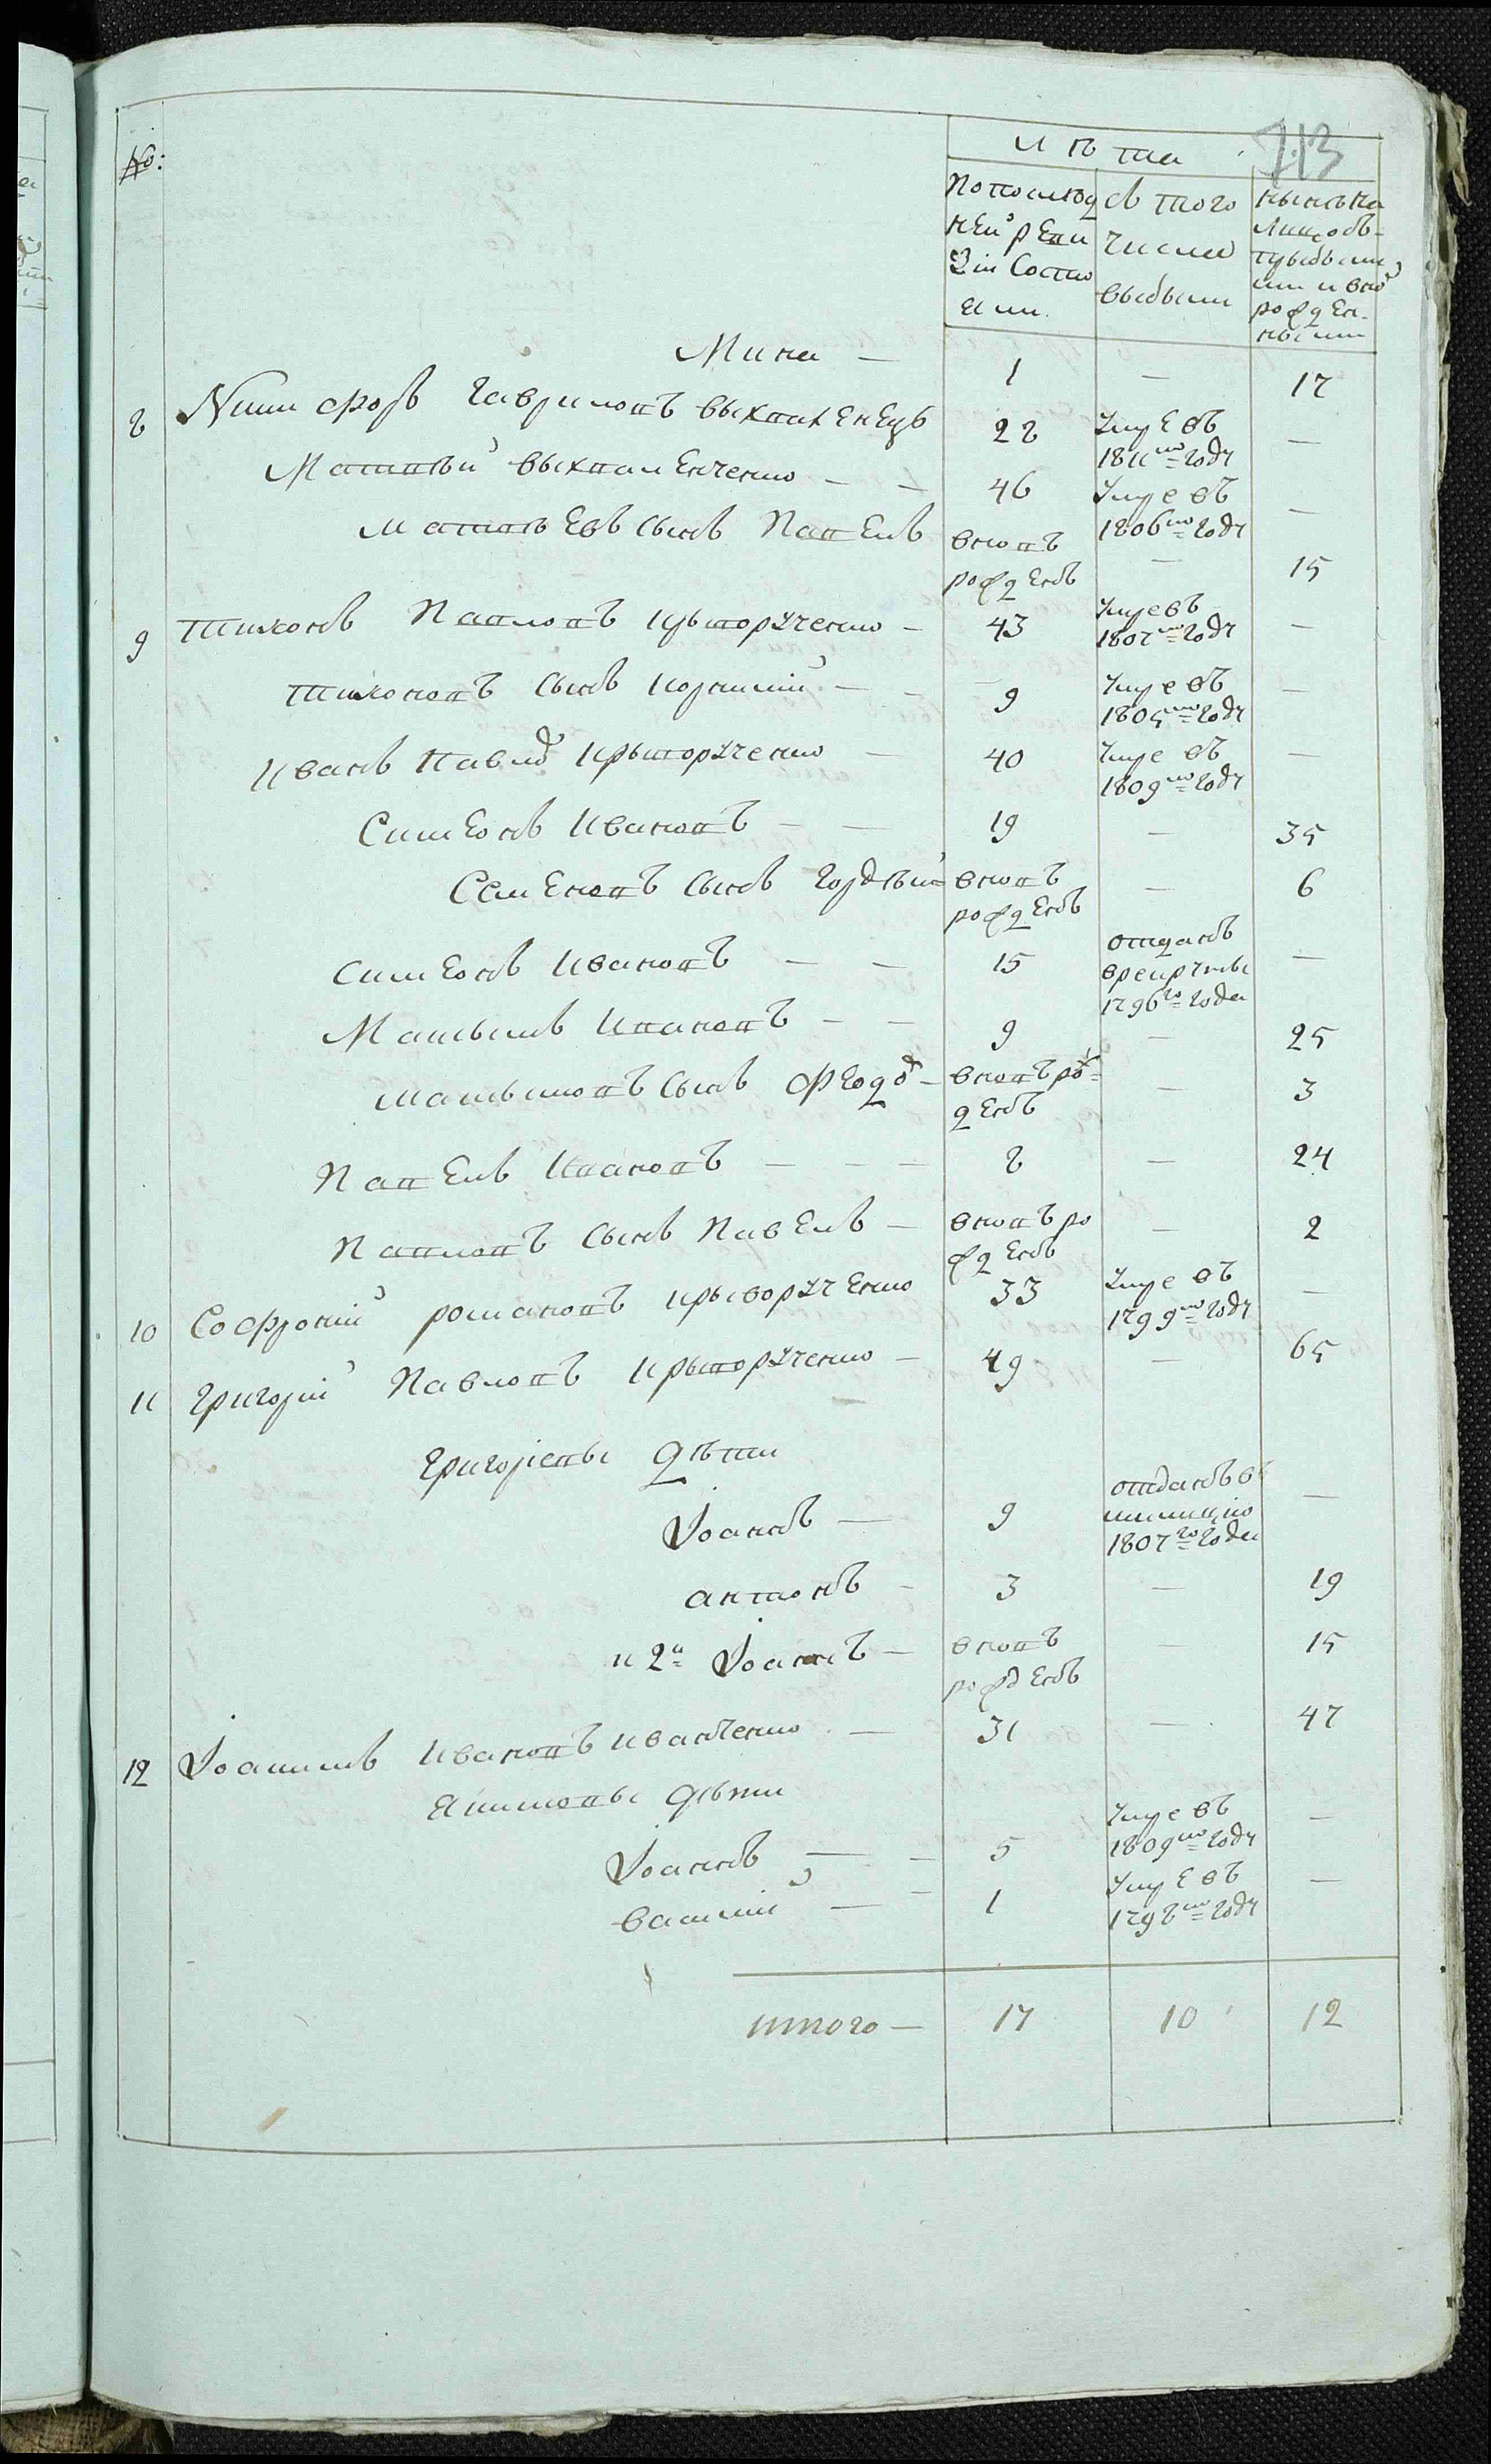 №:
Лѣта
713
По послѣд
ней реви
зіи состо
яли.
Съ того
числа
выбыли
нынѣ на
лицо съ
прибылы
ми и внов
рожден-
ными
Мина — 1 — 17
8 Никифоръ Гавриловъ 28 Умре въ
1811мъ году —
Матвѣй — — 46 Умре въ
1806мъ году —
Матвѣевъ сынъ Павелъ вновъ
рожденъ — 15
9 Тихонъ Павловъ Криворученко — 43 Умре въ
1807мъ году —
Тихоновъ сынъ Корнилій — — 9 Умре въ
1805мъ году —
Иванъ Павлов Криворученко — 40 Умре въ
1809мъ году —
Симеонъ Ивановъ — — 19 — 35
Семеновъ сынъ Гордѣй вновъ
рожденъ — 6
Симеонъ Ивановъ — — 15 отданъ
в рекруты
1796го года —
Максимъ Ивановъ — — 9 — 25
Максимовъ сынъ Феодор — вновъ ро-
жденъ — 3
Павелъ Ивановъ — — — 8 — 24
Павловъ сынъ Павелъ — вновъ ро
жденъ — 2
10 Софроній Романовъ Криворученко 33 Умре въ
1799мъ году —
11 Григорій Павловъ Криворученко — 49 — 65
Григоріевы дѣти
Іоаннъ — 9 отданъ в
милицію
1807го года —
Антонъ — 3 — 19
и 2й Іоаннъ — вновъ
рожденъ — 15
12 Іоакимъ Ивановъ Иванченко — 31 — 47
Якимовы дѣти
Іоаннъ — — 5 Умре въ
1809мъ году —
Василій — — 1 Умре въ
1798мъ году —
Итого — 17 10 12